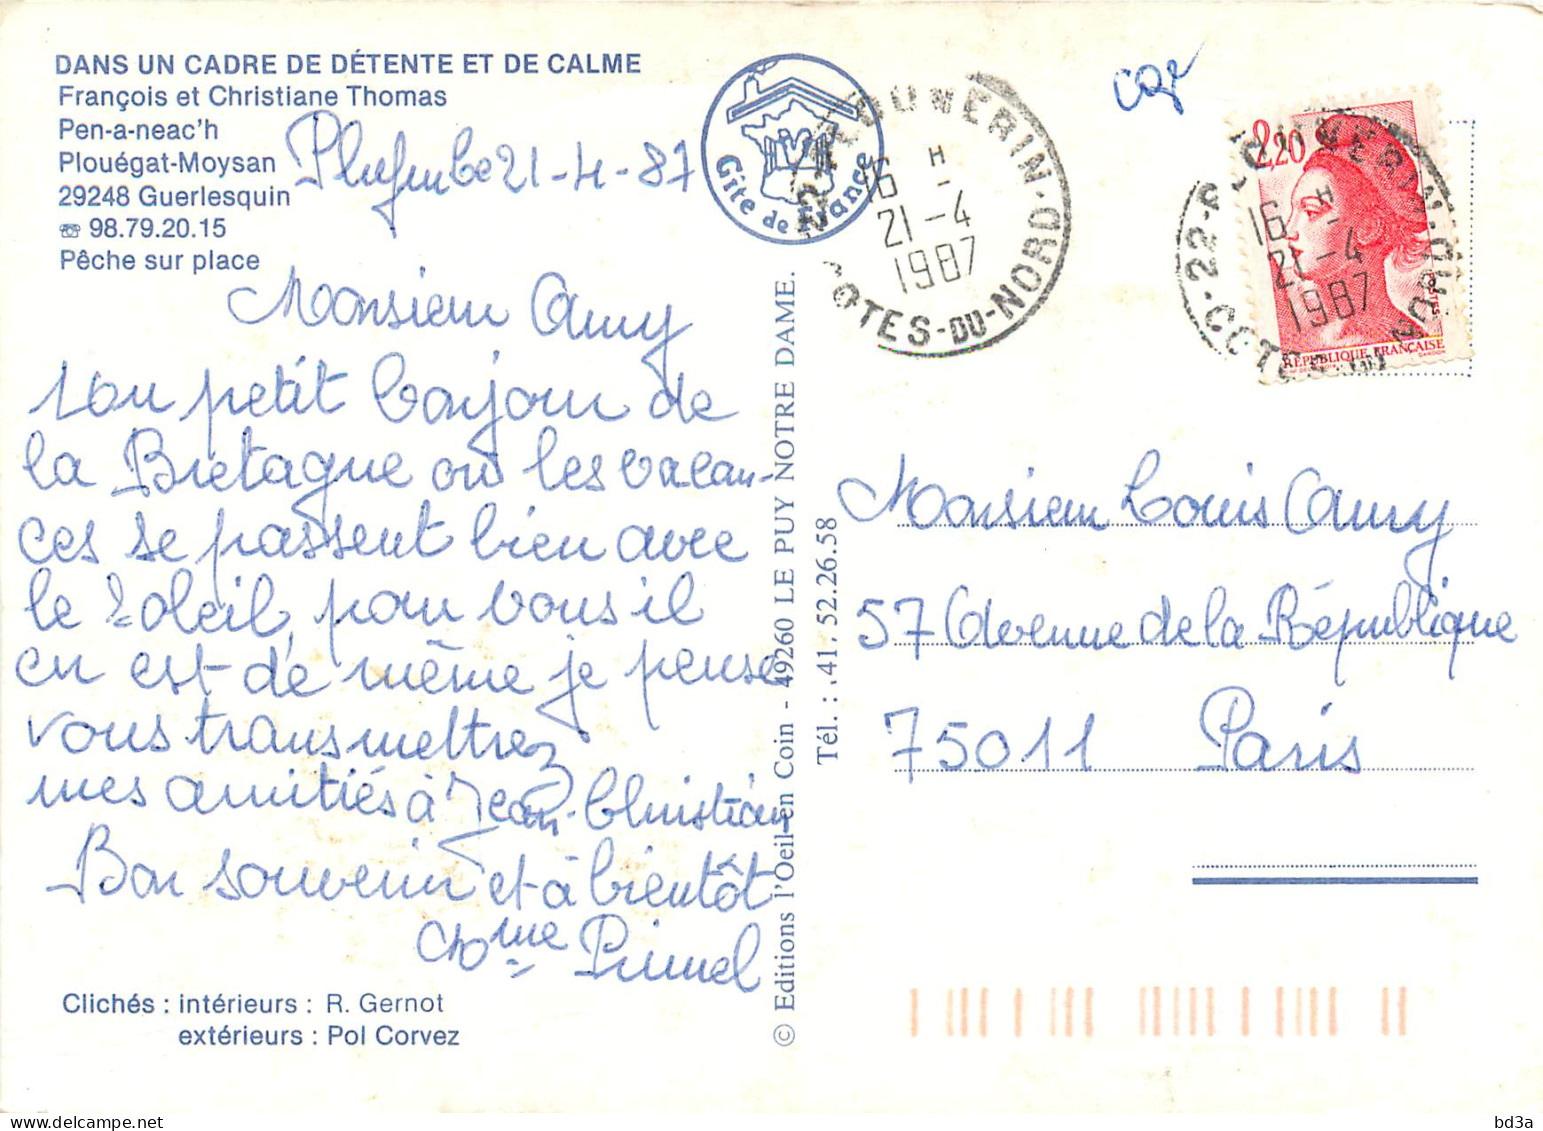 DANS UN CADRE DE DÉTENTE ET DE CALME
François et Christiane Thomas
Pen-a-neac'h
Plouégat-Moysan
29248 Guerlesquin
☎ 98.79.20.15
Pêche sur place
Gîte de France
21-4-87
Monsieur Amy
Un petit bonjour de
la Bretagne où les vacan-
ces se passent bien avec
le soleil, pour vous il
en est de même je pense
vous transmettrez
mes amitiés à Jean-Christian
Bon souvenir et à bientôt
Mme Primel
Clichés : intérieurs : R. Gernot
extérieurs : Pol Corvez
© Editions l'Oeil en Coin - 49260 LE PUY NOTRE DAME.
Tél. : 41.52.26.58
22-PLOUNERIN-COTES-DU-NORD
16 H
21-4
1987
22-PLOUNERIN-COTES-DU-NORD
16 H
21-4
1987
2,20
RÉPUBLIQUE FRANÇAISE
GANDON
Monsieur Louis Amy
57 Avenue de la République
75011 Paris
bd3a